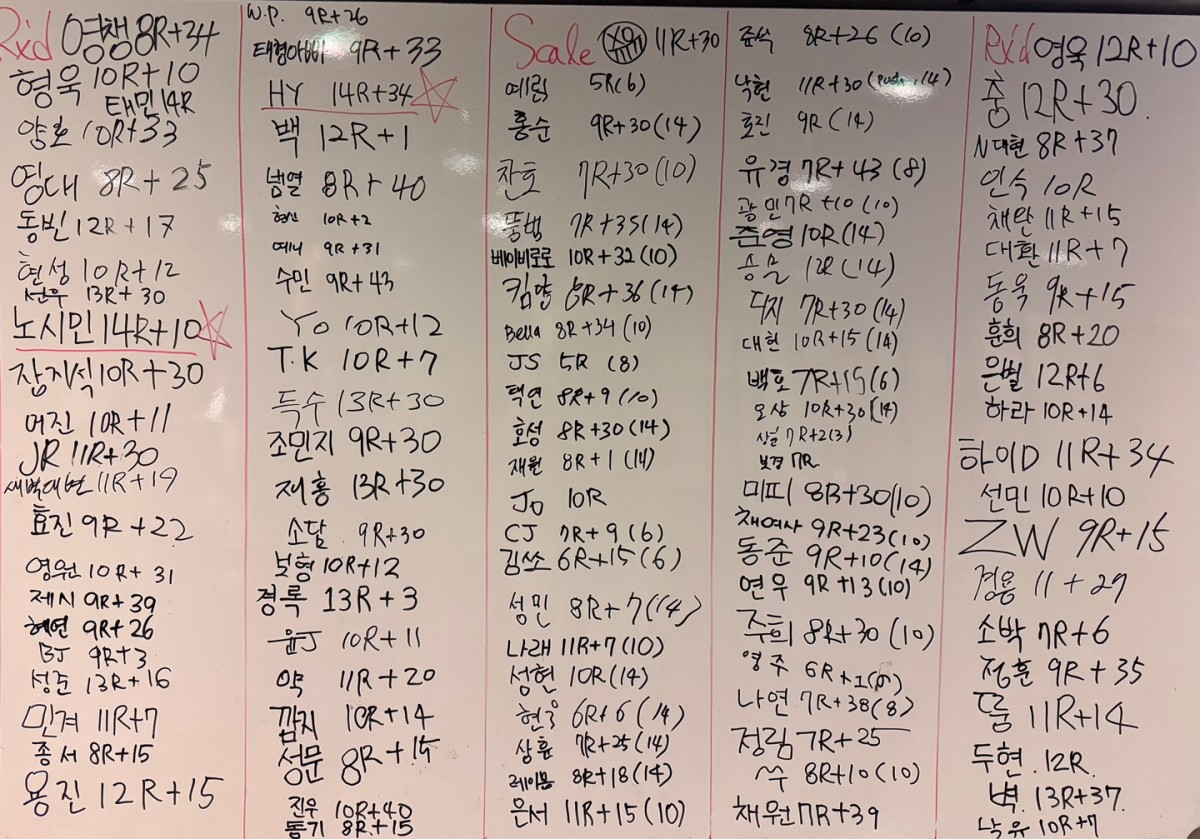 Rxd 영챙 8R+34
형욱 10R+10
태민 14R
양호 10R+33
영대 8R+25
동빈 12R+17
현성 10R+12
선우 13R+30
노시민 14R+10
잡지식 10R+30
머진 10R+11
JR 11R+30
새벽대변 11R+19
효진 9R+22
영원 10R+31
제시 9R+39
혜연 9R+26
BJ 9R+3
성준 13R+16
민겨 11R+7
종서 8R+15
용진 12R+15
W.P. 9R+26
9R+33
HY 14R+34
백 12R+1
남열 8R+40
현신 10R+2
예니 9R+31
수민 9R+43
Yo 10R+12
T.K 10R+7
득수 13R+30
조민지 9R+30
재홍 13R+30
소달 9R+30
보형 10R+12
경록 13R+3
윤J 10R+11
약 11R+20
깜지 10R+14
성문 8R+15
진우 10R+40
동기 8R+15
Scale 11R+30
예린 5R(6)
홍순 9R+30(14)
찬호 7R+30(10)
뚱범 7R+35(14)
베이비로로 10R+32(10)
킴얀 8R+36(14)
Bella 8R+34(10)
JS 5R (8)
택연 8R+9(10)
호성 8R+30(14)
재원 8R+1(14)
Jo 10R
CJ 7R+9(6)
김쏘 6R+15(6)
성민 8R+7(14)
나래 11R+7(10)
성현 10R(14)
현우 6R+6(14)
상훈 7R+25(14)
레이몬 8R+18(14)
은서 11R+15(10)
준석 8R+26(10)
낙현 11R+30(push, 14)
효진 9R(14)
유경 7R+43(8)
광민 7R+10(10)
준영 10R(14)
승모 12R(14)
닥지 7R+30(14)
대현 10R+15(14)
백호 7R+15(6)
모상 10R+30(14)
상일 7R+2(3)
보경 7R
미피 8R+30(10)
채여사 9R+23(10)
동준 9R+10(14)
연우 9R+13(10)
주희 8R+30(10)
영주 6R+1(6)
나연 7R+38(8)
정림 7R+25
쑤 8R+10(10)
채원 7R+39
Rx'd 영욱 12R+10
춤 12R+30
N대현 8R+37
인숙 10R
채완 11R+15
대환 11R+7
동욱 9R+15
훈희 8R+20
은별 12R+6
하라 10R+14
하이D 11R+34
선민 10R+10
ZW 9R+15
경용 11+27
소박 7R+6
정훈 9R+35
룸 11R+14
두현 12R
벽 13R+37
10R+7